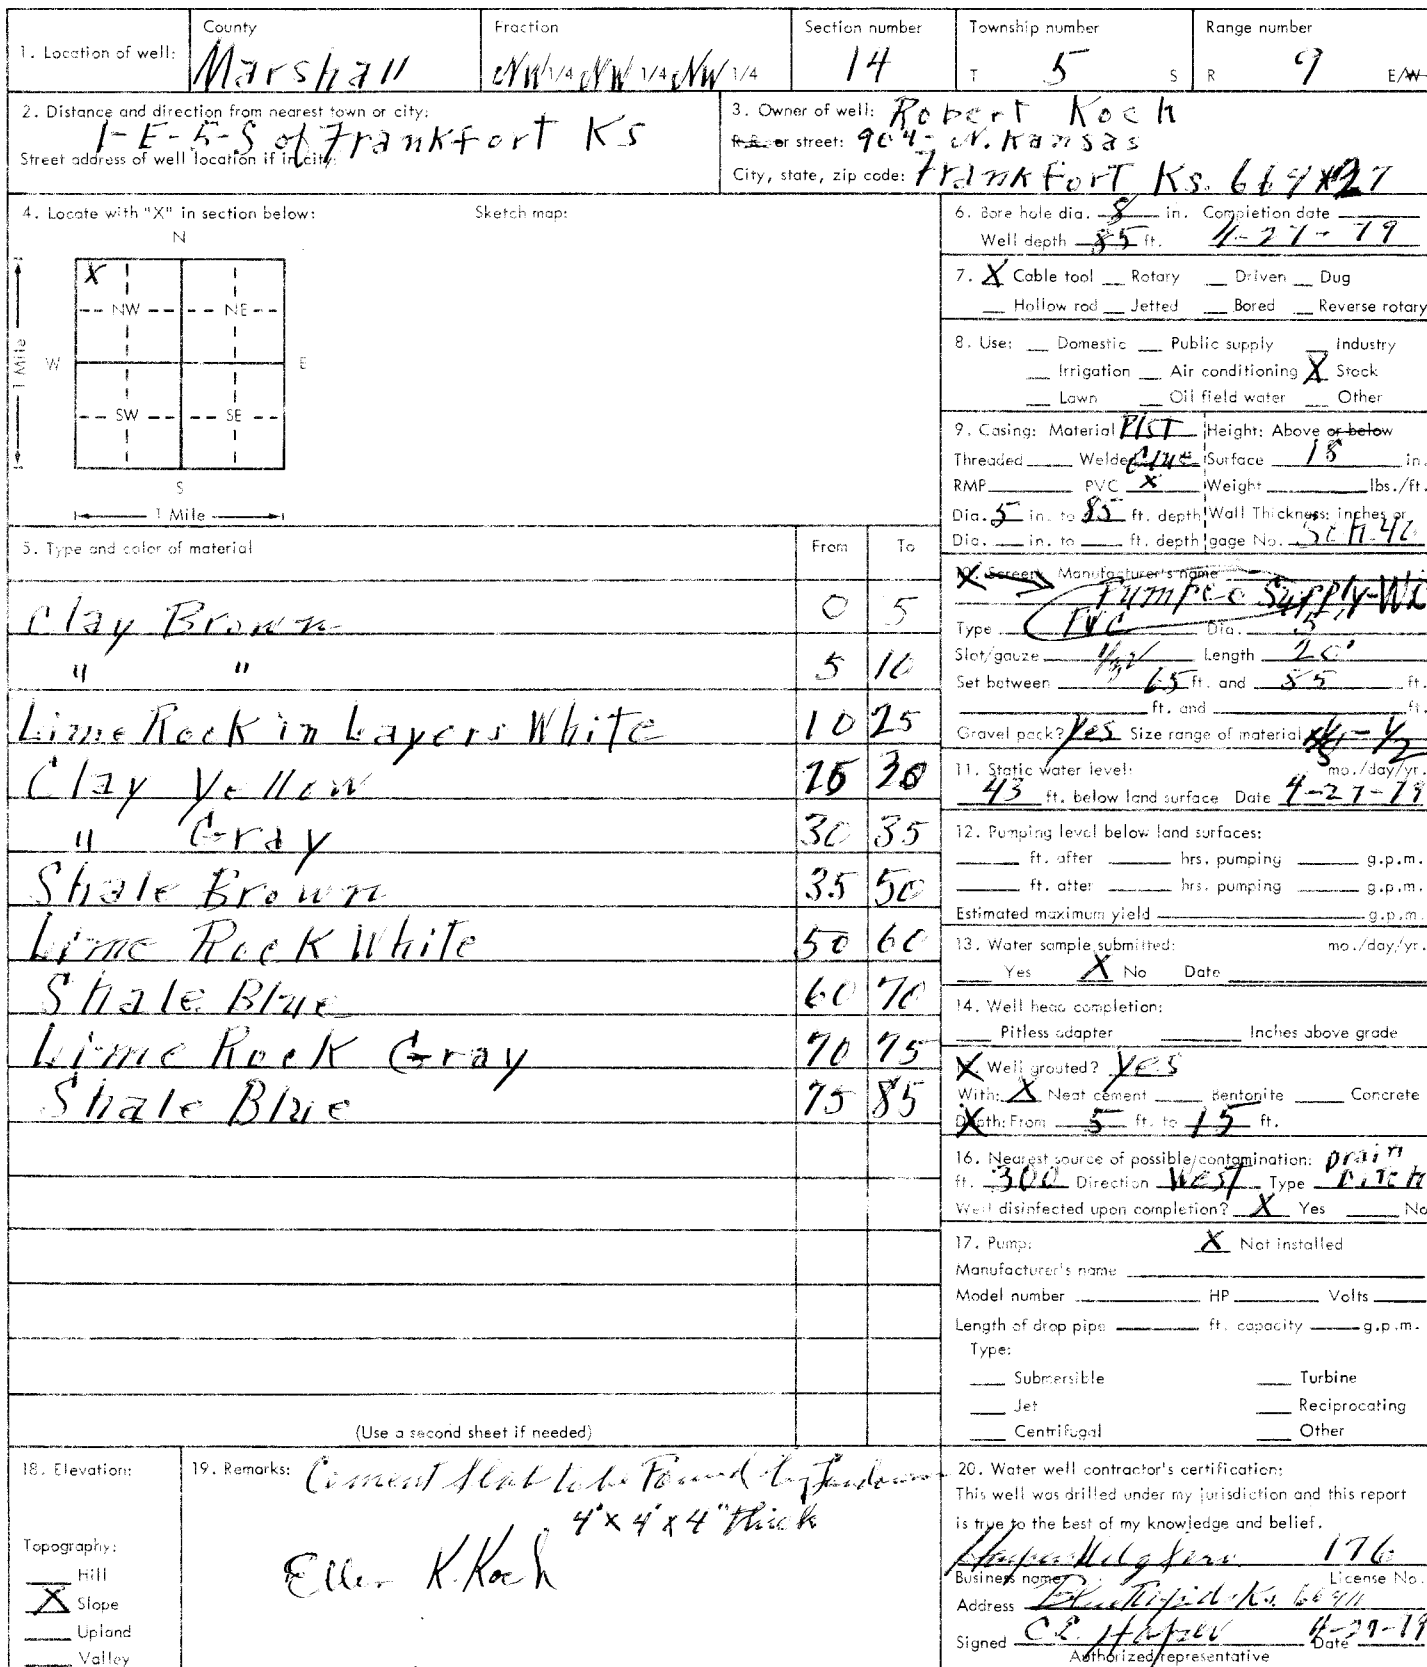 1. Location of well: County Marshall Fraction NW 1/4 NW 1/4 NW 1/4 Section number 14 Township number T 5 S Range number R 9 E/W
2. Distance and direction from nearest town or city:
1-E-5-S of Frankfort Ks
Street address of well location if in city:
3. Owner of well: Robert Koch
R.R. or street: 904- N. Kansas
City, state, zip code: Frankfort Ks.
4. Locate with "X" in section below: Sketch map:
N
X
NW NE
W E
1 Mile
SW SE
S
1 Mile
5. Type and color of material From To
Clay Brown 0 5
" " 5 10
Lime Rock in Layers White 10 25
Clay Yellow
" Gray 30 35
Shale Brown 35 50
Lime Rock White 50 60
Shale Blue 60 70
Lime Rock Gray 70 75
Shale Blue 75 85
(Use a second sheet if needed)
6. Bore hole dia. 8 in. Completion date
Well depth 85 ft. 4-27-79
7. X Cable tool Rotary Driven Dug
Hollow rod Jetted Bored Reverse rotary
8. Use: Domestic Public supply Industry
Irrigation Air conditioning X Stock
Lawn Oil field water Other
9. Casing: Material Plst Height: Above or below
Threaded Welded Glue Surface 18 in.
RMP PVC X Weight lbs./ft.
Dia. 5 in. to 85 ft. depth Wall Thickness: inches or
Dia. in. to ft. depth gage No. Sch-40
10. Screen: Manufacturer's name
Supply
Type PVC Dia. 5
Slot/gauze Length 20'
Set between 65 ft. and 85 ft.
ft. and ft.
Gravel pack? Yes Size range of material
11. Static water level: mo./day/yr.
43 ft. below land surface Date 4-27-79
12. Pumping level below land surfaces:
ft. after hrs. pumping g.p.m.
ft. after hrs. pumping g.p.m.
Estimated maximum yield g.p.m.
13. Water sample submitted: mo./day/yr.
Yes X No Date
14. Well head completion:
Pitless adapter Inches above grade
Well grouted? Yes
With: X Neat cement Bentonite Concrete
Depth: From 5 ft. to 15 ft.
16. Nearest source of possible contamination: Drain
ft. 300 Direction West Type Ditch
Well disinfected upon completion? X Yes No
17. Pump: X Not installed
Manufacturer's name
Model number HP Volts
Length of drop pipe ft. capacity g.p.m.
Type:
Submersible Turbine
Jet Reciprocating
Centrifugal Other
18. Elevation:
Topography:
Hill
X Slope
Upland
Valley
19. Remarks: Cement slab to be
4' x 4' x 4" thick
Ellen K. Koch
20. Water well contractor's certification:
This well was drilled under my jurisdiction and this report
is true to the best of my knowledge and belief.
176
Business name License No.
Address Blue Rapids Ks.
Signed C.E. Date
Authorized representative